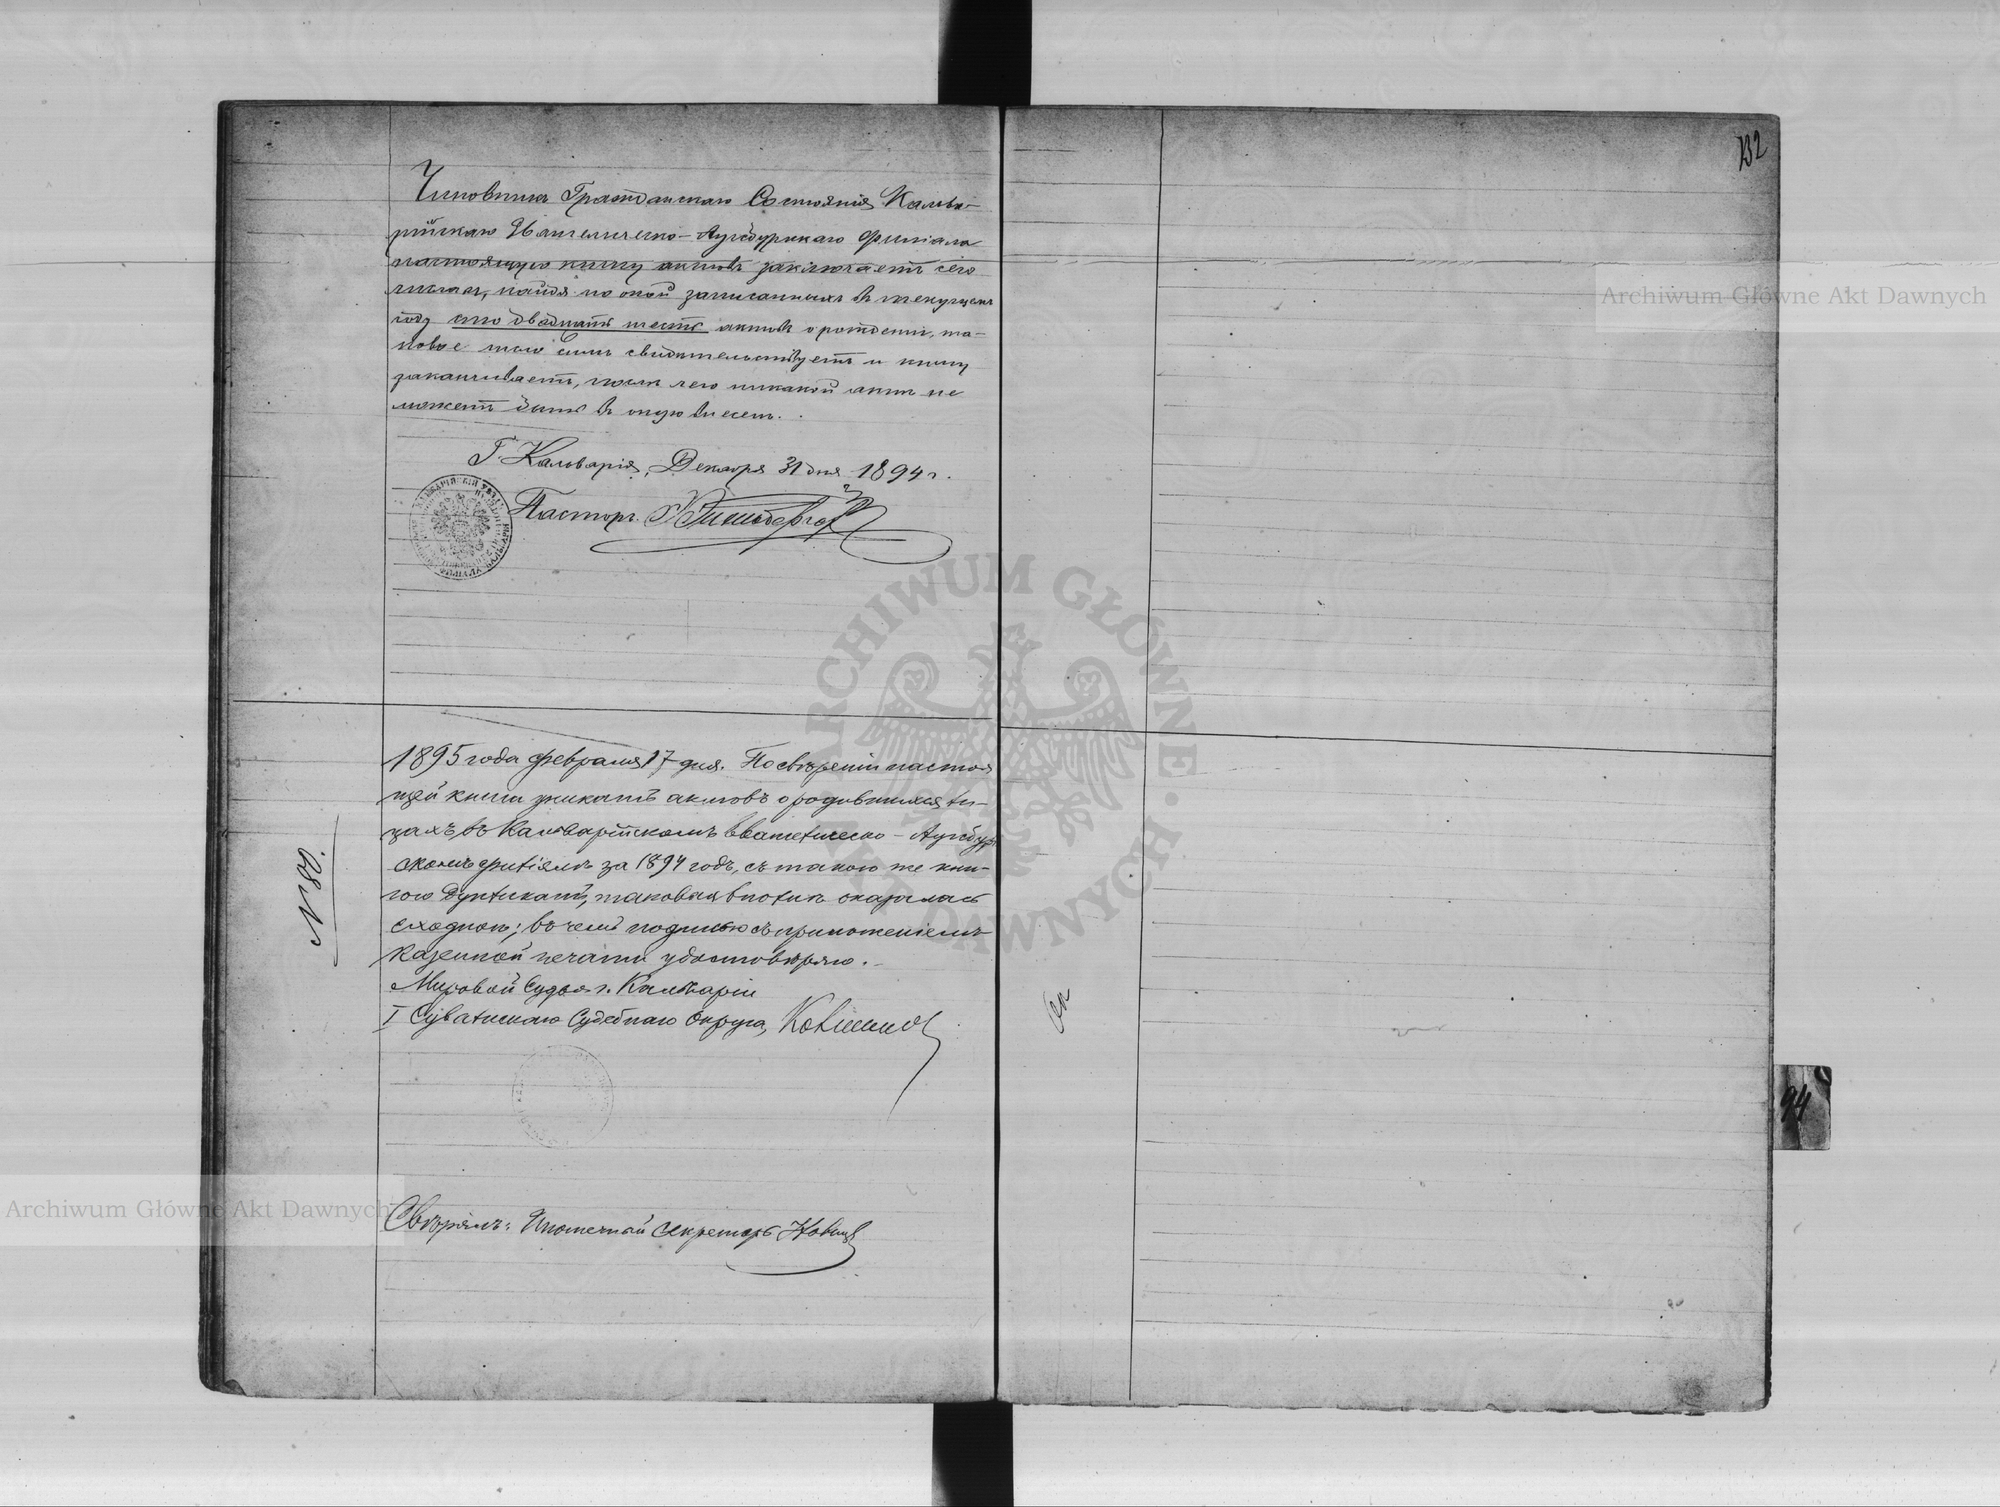 132
Чиновникъ Гражданскаго Состоянія Кальва-
рійскаго Евангелическо-Аугсбургскаго Филіала
настоящую книгу актовъ заключаетъ сего
числа, найдя по оной записанныхъ въ текущемъ
году сто двадцать шесть актовъ о рожденіи, та-
ковое число симъ свидѣтельствуетъ и книгу
заканчиваетъ, послѣ чего никакой актъ не
можетъ быть въ оную внесенъ.
Г. Кальварія, Декабря 31 дня 1894 г.
Пасторъ
1895 года февраля 17 дня. По свѣреніи настоя
щей книги уникатъ актовъ о родившихся ли-
цахъ въ Кальварійскомъ Евангелическо-Аугсбург
скомъ филіалѣ за 1894 годъ, съ такою же кни-
гою Дупликатъ, таковая вполнѣ оказалась
сходною; въ чемъ подписью съ приложеніемъ
казенной печати удостовѣряю.
Мировой Судья г. Кальваріи
I Сувалкскаго Судебнаго Округа,
№ 80.
Свѣрялъ: Ипотечный Секретарь
94
Archiwum Główne Akt Dawnych
Archiwum Główne Akt Dawnych
ARCHIWUM GŁÓWNE AKT DAWNYCH